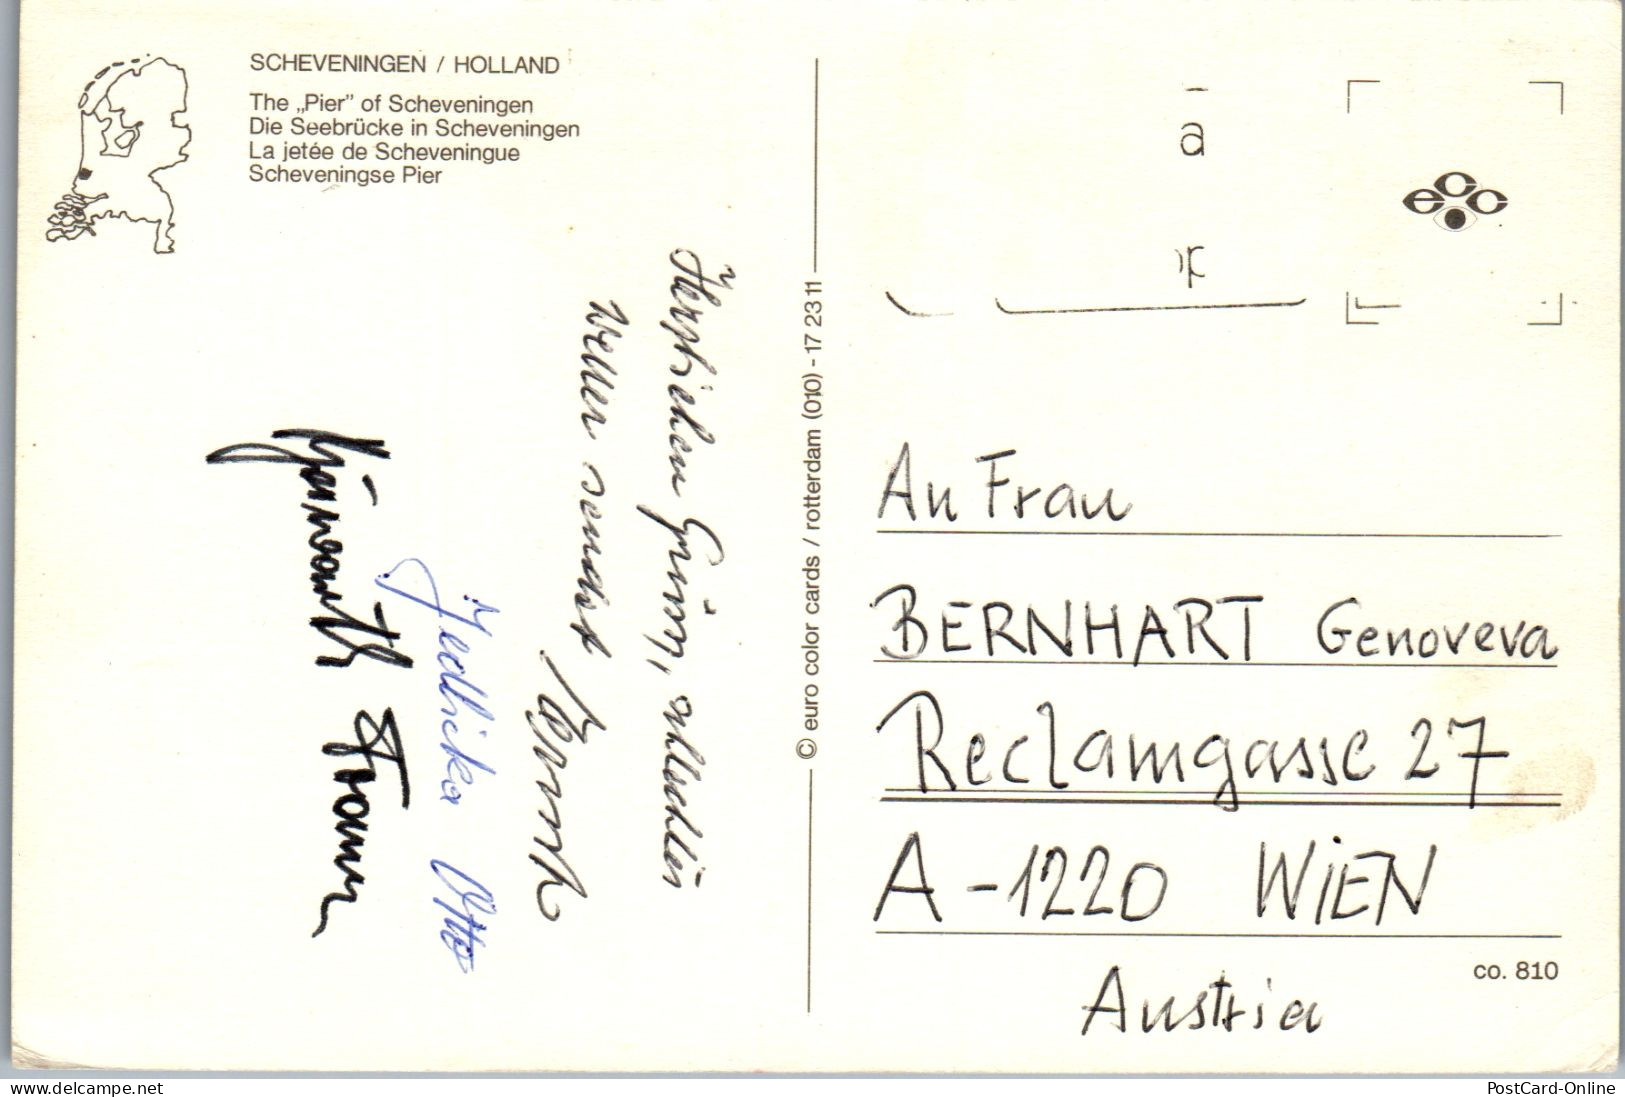 SCHEVENINGEN / HOLLAND
The „Pier” of Scheveningen
Die Seebrücke in Scheveningen
La jetée de Scheveningue
Scheveningse Pier
Herzlichen Grüsse,
sendet
Jedlicka Otto
Franz
© euro color cards / rotterdam (010) - 17 23 11
a
ecc
An Frau
BERNHART Genoveva
Reclamgasse 27
A - 1220 WIEN
Austria
co. 810
www.delcampe.net
PostCard-Online